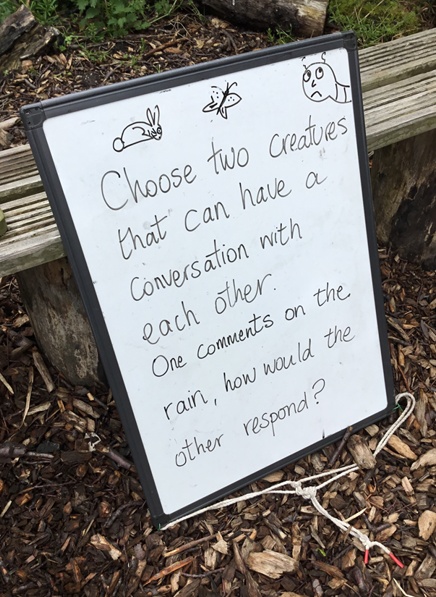 Choose two creatures
that can have a
conversation with
each other.
One comments on the
rain, how would the
other respond?